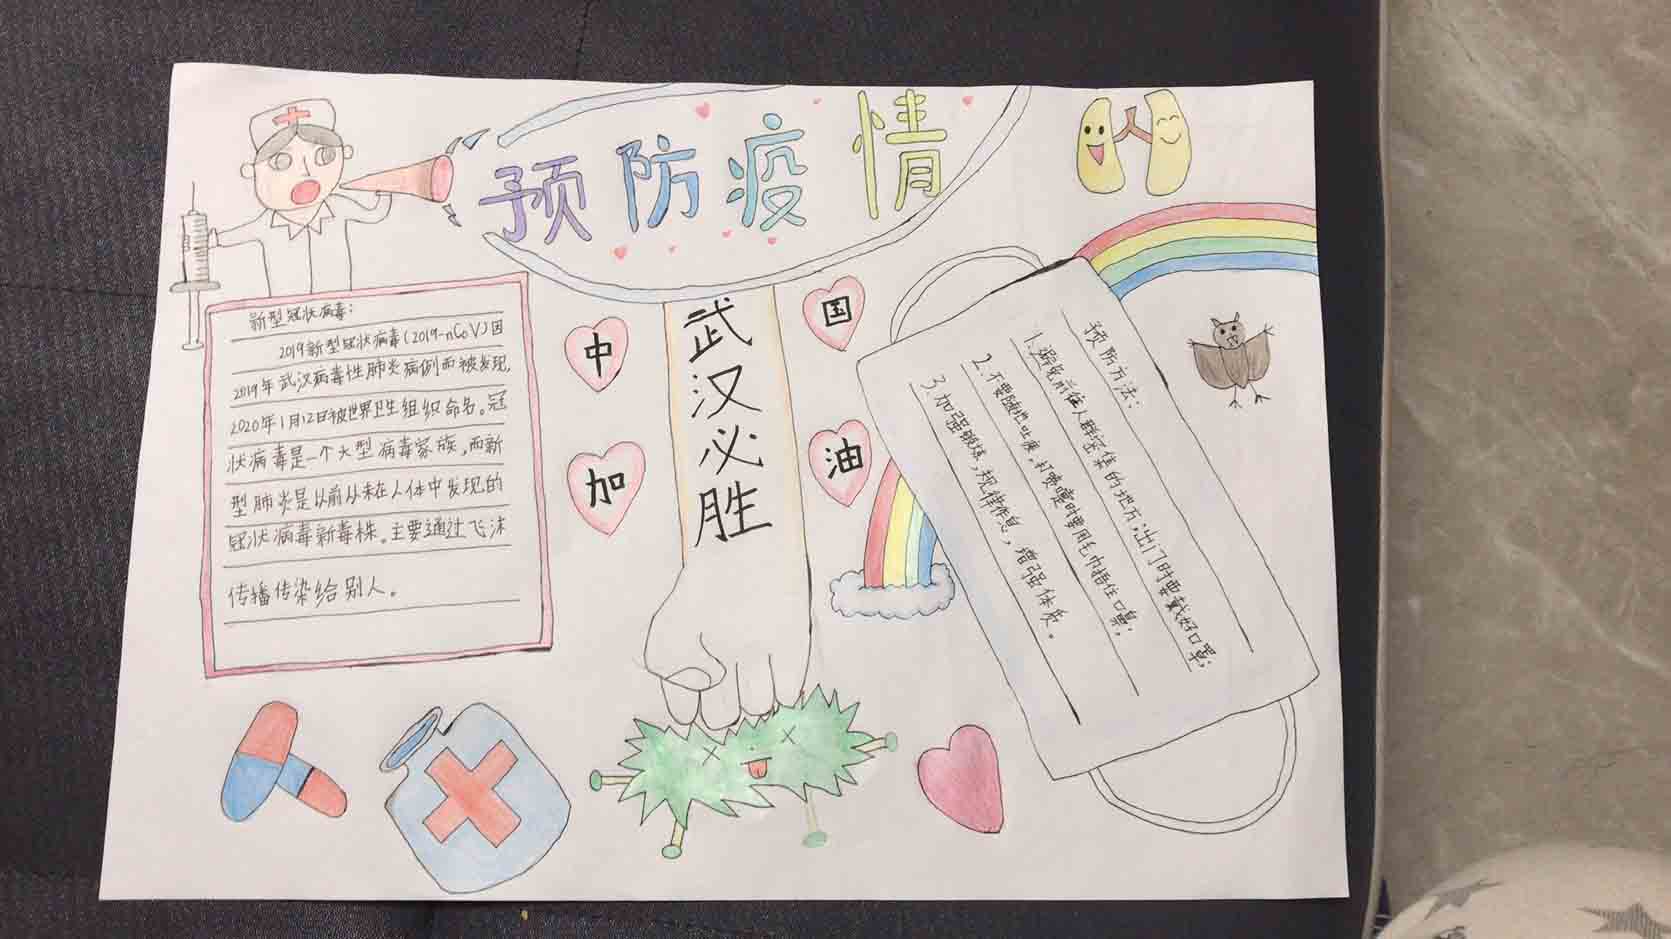 预防疫情
新型冠状病毒：
2019新型冠状病毒(2019-nCoV)因
2019年武汉病毒性肺炎病例而被发现,
2020年1月12日被世界卫生组织命名。冠
状病毒是一个大型病毒家族,而新
型肺炎是以前从未在人体中发现的
冠状病毒新毒株。主要通过飞沫
传播传染给别人。
中国
加油
武汉必胜
预防方法：
1.避免前往人群密集的地方,出门时要戴好口罩;
2.不要随地吐痰,打喷嚏时要用毛巾捂住口鼻;
3.加强锻炼,规律作息,增强体质。